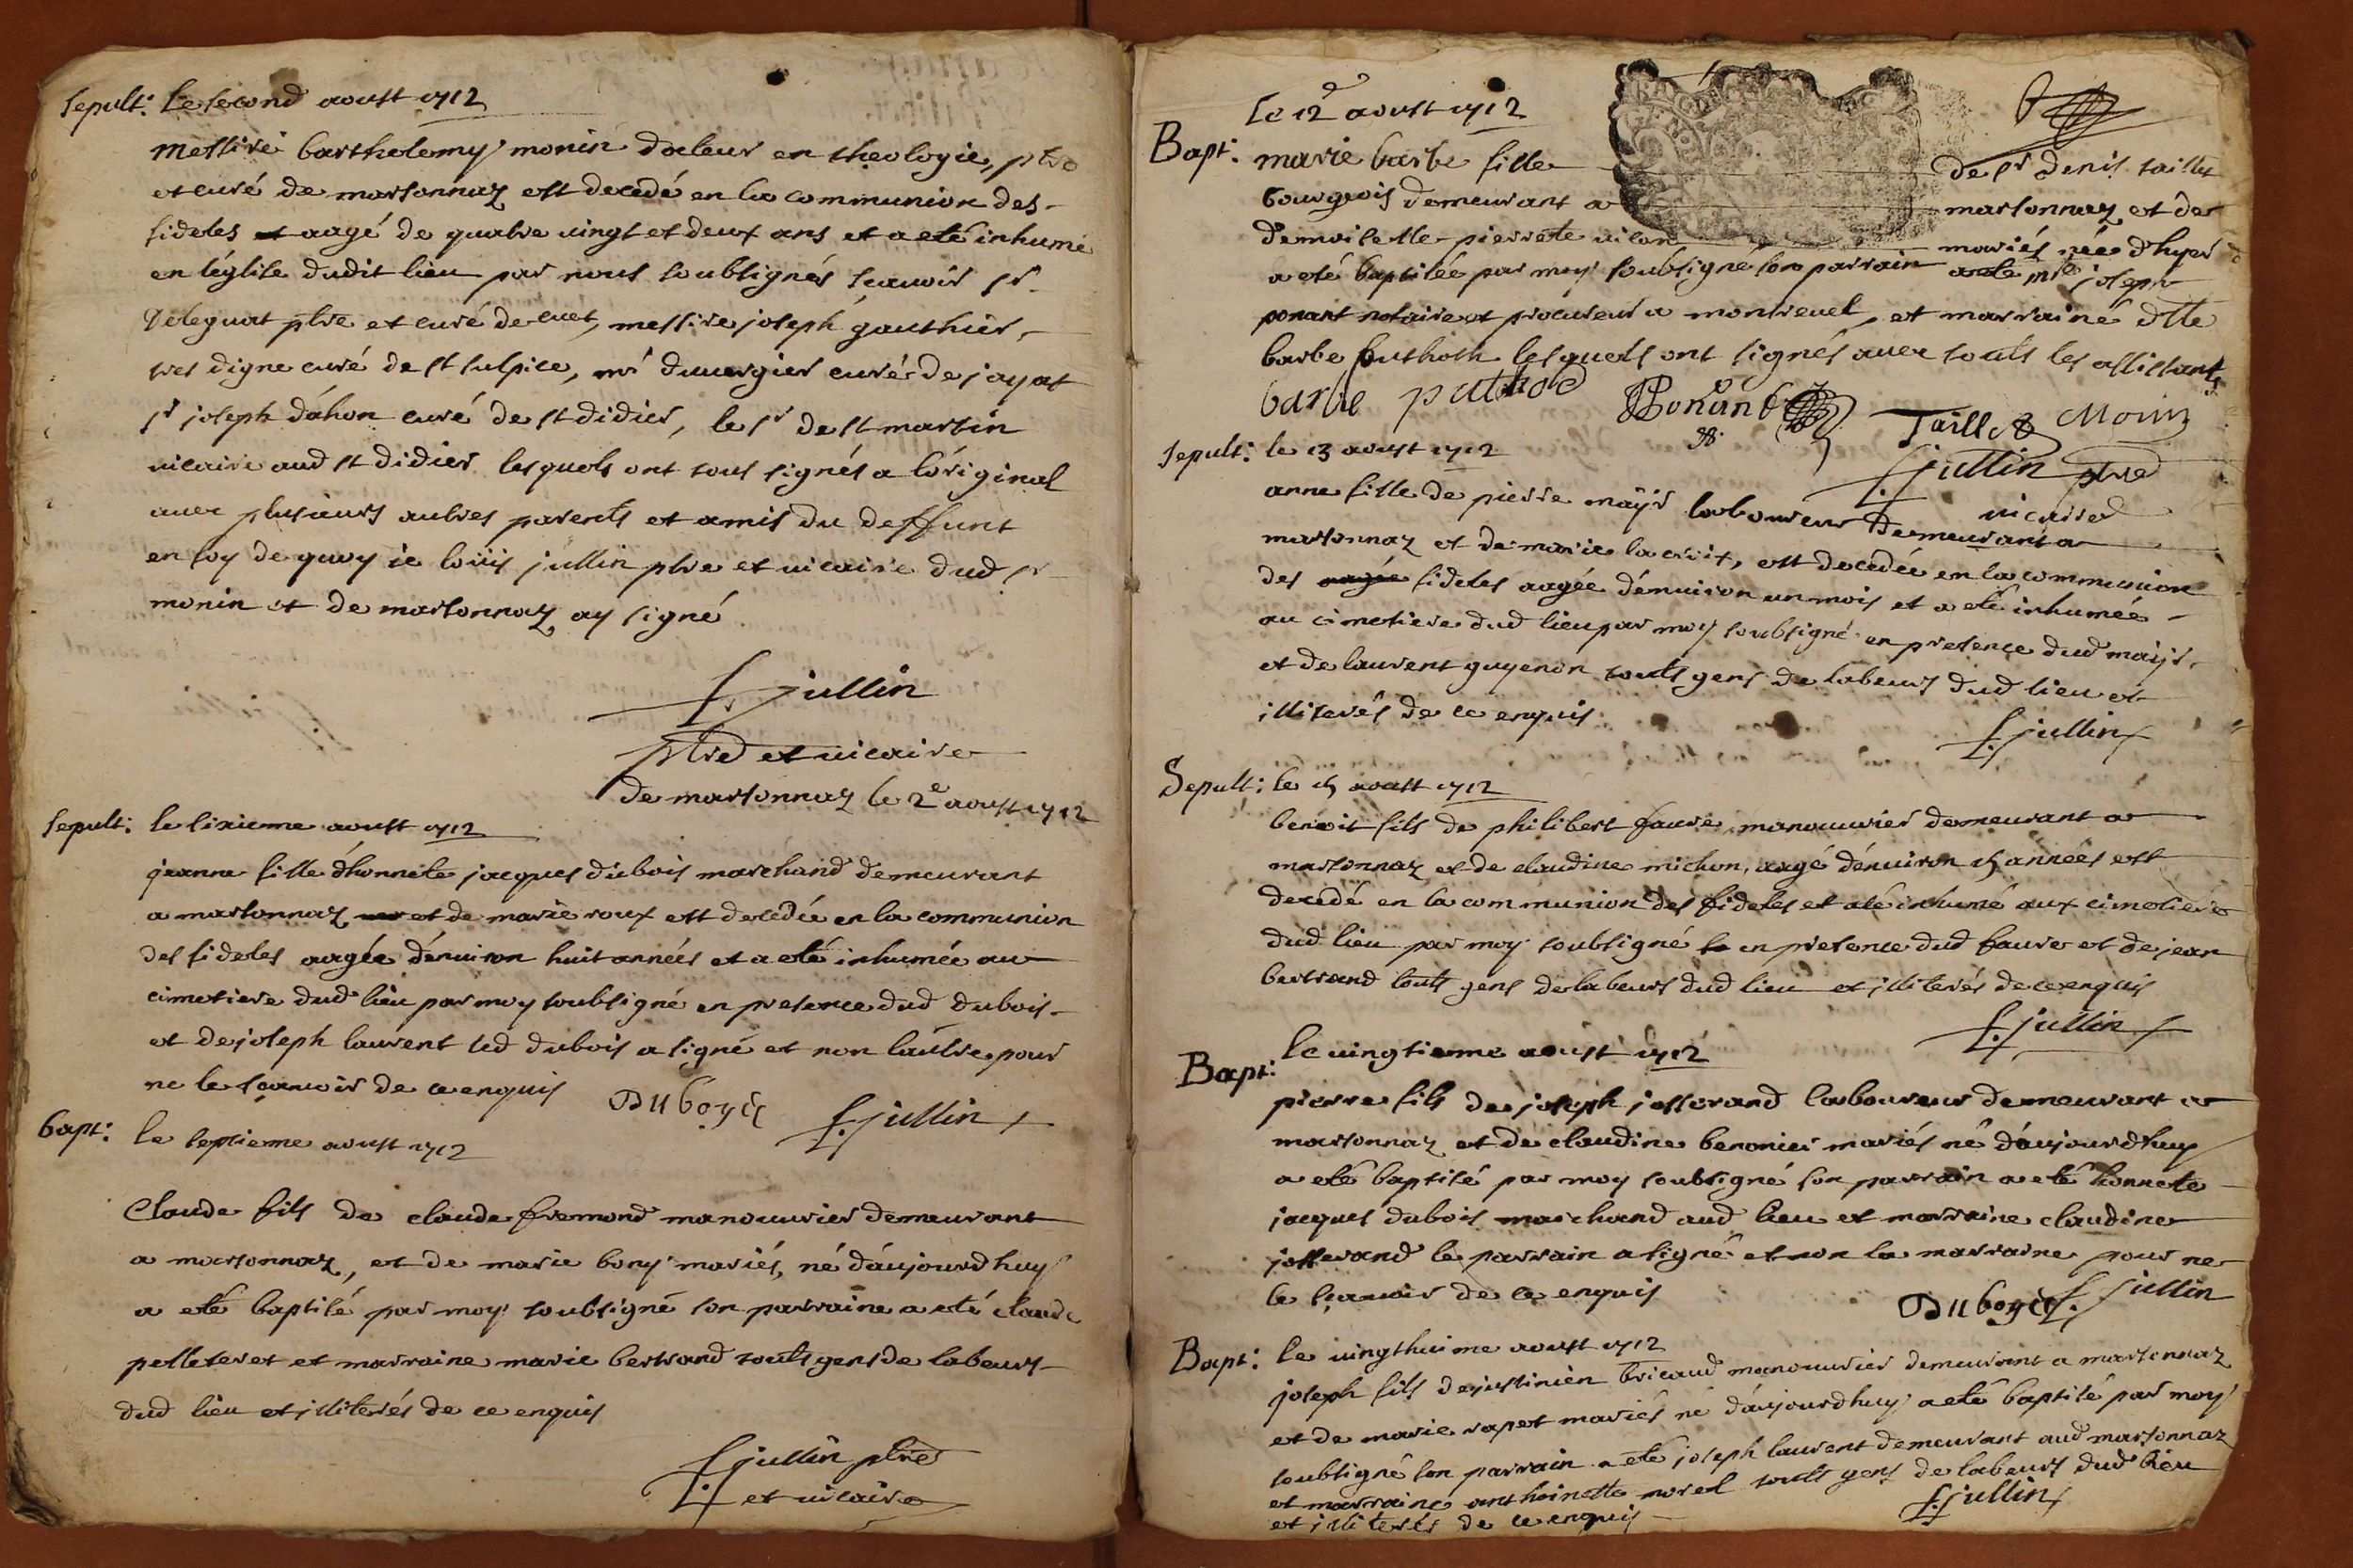 Sepult: Le second aoust 1712
Messire barthelemy monin docteur en theologie, ptre
et curé de marsonnaz est decedé en la communion des
fideles et aagé de quatre vingt et deux ans et a eté inhumé
en léglise dudit lieu par nous soubsignés scavoir sr
deleguat ptre et curé de cuet, messire joseph gauthier,
tres digne curé de st sulpice, mr duuergier curé de jayat
sr joseph dáhon curé de st didier, le sr de st martin
uicaire aud st didier lesquels ont tous signés a lóriginal
auec plusieurs autres parents et amis du deffunt
en foy de quoy ie loüis jullin ptre et uicaire dud sr
monin et de marsonnaz ay signé
L. jullin
ptre et uicaire
de marsonnaz le 2e aoust 1712
Sepult: le sixieme aoust 1712
jeanne fille d'honnete jacques dubois marchand demeurant
a marsonnaz et de marie roux est decedée en la communion
des fideles aagée dénuiron huit années et a eté inhumée au
cimetiere dud lieu par moy soubsigné en presence dud dubois
et de joseph laurent led dubois a signé et non láutre pour
ne le scauoir de ce enquis Duboys L. jullin
bapt: le septieme aoust 1712
Claude fils de claude fremond manouurier demeurant
a marsonnaz, et de marie bony mariés, né dáujourdhuy
a eté baptisé par moy soubsigné son parraine a eté claude
pelleteret et marraine marie bertrand touts gens de labeurs
dud lieu et illiterés de ce enquis
L. jullin ptre
et uicaire
Le 12e aoust 1712
Bapt: marie barbe fille de sr denis taillet
bourgeois demeurant a marsonnaz et de
demoiselle pierrete mariés née d'hyer
a eté baptisée par moy soubsigné son parrain a eté mre joseph
ponant notaire et procureur a montreuel, et marraine dlle
barbe puthoth lesquels ont signés auec touts les assistants
barbe puthod Ponant Taillet Monin
L. jullin ptre
uicaire
Sepult: le 13 aoust 1712
anne fille de pierre mayr laboureur demeurant a
marsonnaz et de marie la croix, est decedée en la communion
des aagée fideles aagée dénuiron un mois et a eté inhumée
au cimetiere dud lieu par moy soubsigné en presence dud mayr
et de laurent guyenon touts gens de labeurs dud lieu et
illiterés de ce enquis
L. jullin
Sepult: le 15 aoust 1712
benoit fils de philibert faure manouurier demeurant a
marsonnaz et de claudine michon, aagé dénuiron 15 années est
decedé en la communion des fideles et a eté inhumé aux cimetiere
dud lieu par moy soubsigné en presence dud faure et de jean
bertrand touts gens de labeurs dud lieu et illiterés de ce enquis
L. jullin
Bapt: le uingtieme aoust 1712
pierre fils de joseph josserand laboureur demeurant a
marsonnaz et de claudine beronier mariés né dáujourdhuy
a eté baptisé par moy soubsigné son parrain a eté honnete
jacques dubois marchand aud lieu et marraine claudine
josserand le parrain a signé et non la marraine pour ne
le scauoir de ce enquis
Duboys L. jullin
Bapt: le uingthuime aoust 1712
joseph fils de justinien bricaud manouurier demeurant a marsonnaz
et de marie rapet mariés né dáujourdhuy a eté baptisé par moy
soubsigné son parrain a eté joseph laurent demeurant aud marsonnaz
et marraine anthoinette morel touts gens de labeurs dud lieu
et illiterés de ce enquis
L. jullin